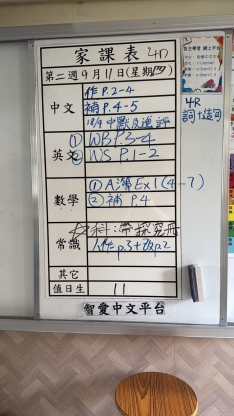 家課表 4R
第二週9月11日(星期四)
中文
作P.2-4
補P.4-5
18/9中默及漢評
英文
① WB P.3-4
② WS P.1-2
數學
① A簿Ex1(4-7)
② 補P.4
常識
科:帶探究冊
作p3+改p2
其它
值日生 11
智愛中文平台
4R